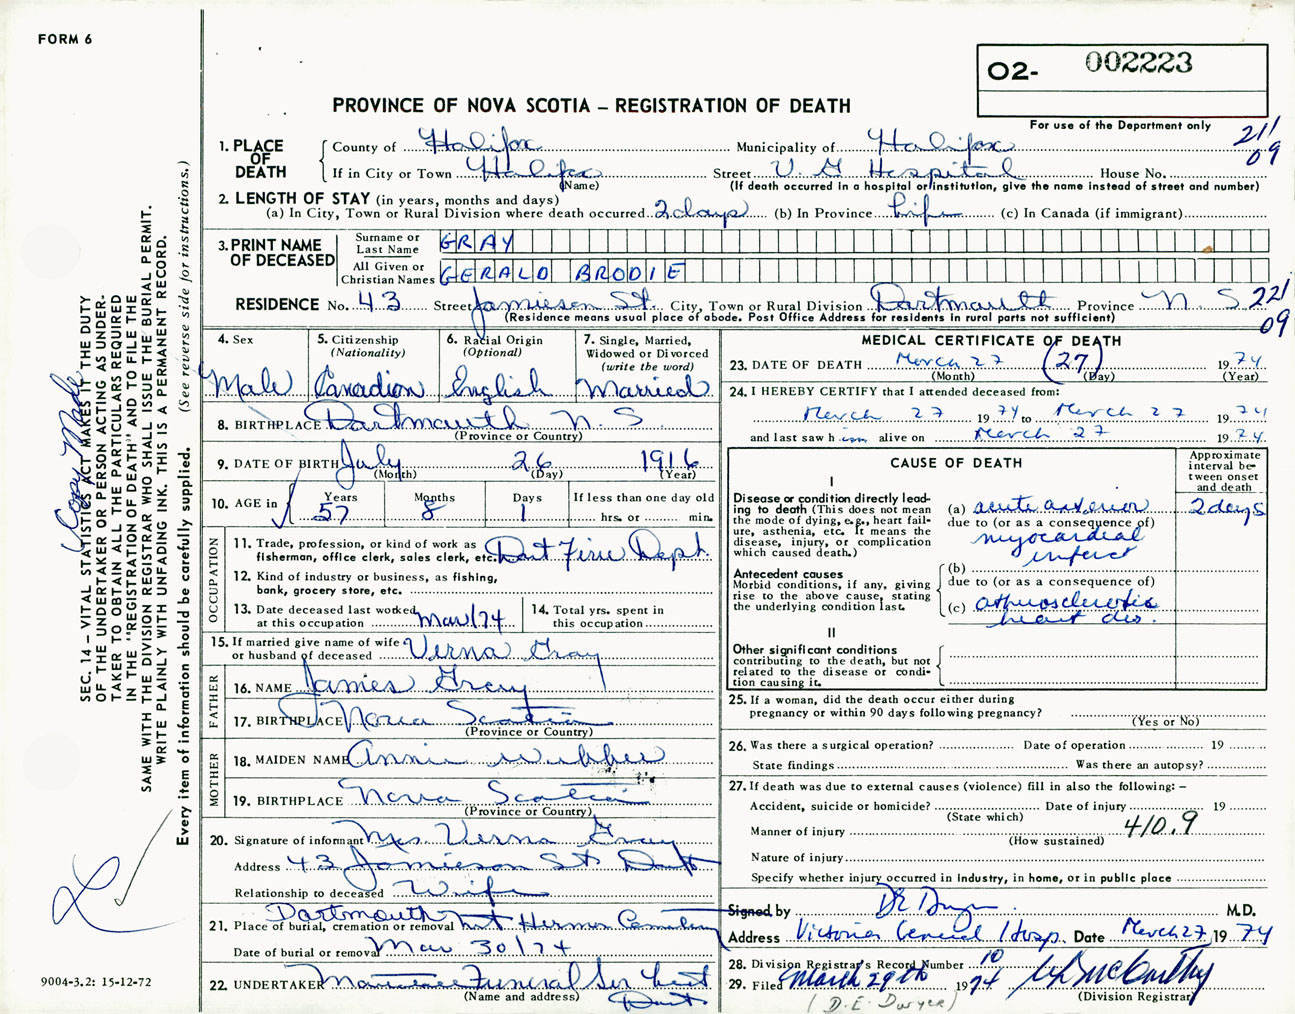 FORM 6
O2- 002223
PROVINCE OF NOVA SCOTIA – REGISTRATION OF DEATH
For use of the Department only
211
09
1. PLACE OF DEATH
County of Halifax Municipality of Halifax
If in City or Town Halifax Street V. G Hospital House No.
(Name) (If death occurred in a hospital or institution, give the name instead of street and number)
2. LENGTH OF STAY (in years, months and days)
(a) In City, Town or Rural Division where death occurred 2 days (b) In Province Life (c) In Canada (if immigrant)
3. PRINT NAME OF DECEASED
Surname or Last Name GRAY
All Given or Christian Names GERALD BRODIE
RESIDENCE No. 43 Street Jamieson St. City, Town or Rural Division Dartmouth Province N. S. 221
09
(Residence means usual place of abode. Post Office Address for residents in rural parts not sufficient)
4. Sex
Male
5. Citizenship (Nationality)
Canadian
6. Racial Origin (Optional)
English
7. Single, Married, Widowed or Divorced (write the word)
Married
8. BIRTHPLACE Dartmouth N. S.
(Province or Country)
9. DATE OF BIRTH July 26 1916
(Month) (Day) (Year)
10. AGE in Years Months Days If less than one day old
57 8 1 hrs. or min.
OCCUPATION
11. Trade, profession, or kind of work as fisherman, office clerk, sales clerk, etc. Dart Fire Dept.
12. Kind of industry or business, as fishing, bank, grocery store, etc.
13. Date deceased last worked at this occupation Mar/74
14. Total yrs. spent in this occupation
15. If married give name of wife or husband of deceased Verna Gray
FATHER
16. NAME James Gray
17. BIRTHPLACE Nova Scotia
(Province or Country)
MOTHER
18. MAIDEN NAME Annie Webber
19. BIRTHPLACE Nova Scotia
(Province or Country)
20. Signature of informant Mrs. Verna Gray
Address 43 Jamieson St Dart
Relationship to deceased Wife
21. Place of burial, cremation or removal Dartmouth Mt Hermon Cemetery
Date of burial or removal Mar 30/74
22. UNDERTAKER Funeral Ser
Dart
(Name and address)
MEDICAL CERTIFICATE OF DEATH
23. DATE OF DEATH March 27 (27) 1974
(Month) (Day) (Year)
24. I HEREBY CERTIFY that I attended deceased from:
March 27 1974 to March 27 1974
and last saw him alive on March 27 1974
CAUSE OF DEATH
Approximate interval between onset and death
I
Disease or condition directly leading to death (This does not mean the mode of dying, e.g., heart failure, asthenia, etc. It means the disease, injury, or complication which caused death.)
(a) acute anterior 2 days
due to (or as a consequence of)
myocardial
infarct
Antecedent causes
Morbid conditions, if any, giving rise to the above cause, stating the underlying condition last.
(b)
due to (or as a consequence of)
(c) atherosclerotic
heart dis.
II
Other significant conditions
contributing to the death, but not related to the disease or condition causing it.
25. If a woman, did the death occur either during pregnancy or within 90 days following pregnancy?
(Yes or No)
26. Was there a surgical operation? Date of operation 19
State findings Was there an autopsy?
27. If death was due to external causes (violence) fill in also the following: –
Accident, suicide or homicide? Date of injury 19
(State which)
Manner of injury 410.9
(How sustained)
Nature of injury
Specify whether injury occurred in industry, in home, or in public place
Signed by DE Dwyer M.D.
Address Victoria General Hosp. Date March 27 1974
28. Division Registrar's Record Number 10
29. Filed March 29th 1974 McCarthy
(Division Registrar)
(D.E. Dwyer)
SEC. 14 – VITAL STATISTICS ACT MAKES IT THE DUTY
OF THE UNDERTAKER OR PERSON ACTING AS UNDER-
TAKER TO OBTAIN ALL THE PARTICULARS REQUIRED
IN THE "REGISTRATION OF DEATH" AND TO FILE THE
SAME WITH THE DIVISION REGISTRAR WHO SHALL ISSUE THE BURIAL PERMIT.
WRITE PLAINLY WITH UNFADING INK. THIS IS A PERMANENT RECORD.
Every item of information should be carefully supplied. (See reverse side for instructions.)
Copy Made
9004-3.2: 15-12-72